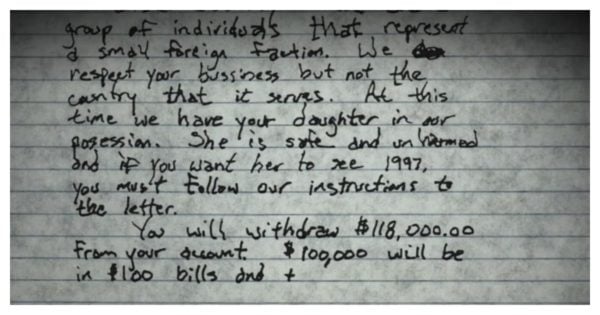 group of individuals that represent
a small foreign faction. We
respect your bussiness but not the
country that it serves. At this
time we have your daughter in our
posession. She is safe and unharmed
and if you want her to see 1997,
you must follow our instructions to
the letter.
You will withdraw $118,000.00
from your account. $100,000 will be
in $100 bills and t